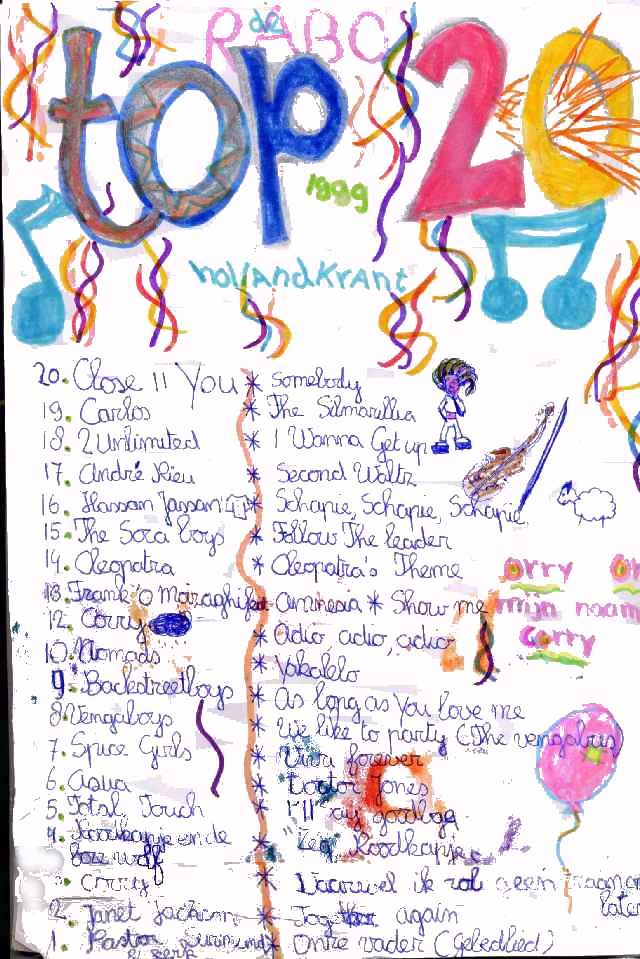 de
RABO
top 20
1999
hollandkrant
20. Close II You * Somebody
19. Carlos * The Silmarillia
18. 2 Unlimited * I Wanna Get up
17. André Rieu * Second Waltz
16. Hassan * Schapie, Schapie, Schapie
15. The Soca boys * Follow The leader
14. Cleopatra * Cleopatra's Theme
13. Frank'O Moiraghi * amnesia * Show me
12. Corry * Adio, adio, adio
10. Nomads * Yakalelo
9. Backstreetboys * As long as You love me
8. Vengaboys * We like to party (The vengabus)
7. Spice Girls * Viva forever
6. aqua * Doctor Jones
5. Total Touch * I'll say goodbye
4. Roodkapje en de boze wolf * "Zeg Roodkapje
corry * Vaarwel ik zal geen traan om
later
2. Janet Jackson * Together again
1. Pastor * Onze vader (Gebedlied)
orry
mijn naam
corry